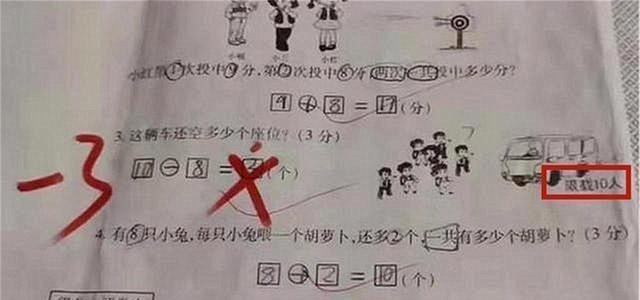 小红第1次投中9分,第2次投中8分,两次一共投中多少分?
9+8=17(分)
3.这辆车还空多少个座位?(3分)
-3
10-8=2(个)
限载10人
4.有8只小兔,每只小兔喂一个胡萝卜,还多2个,一共有多少个胡萝卜?(3分)
8+2=10(个)